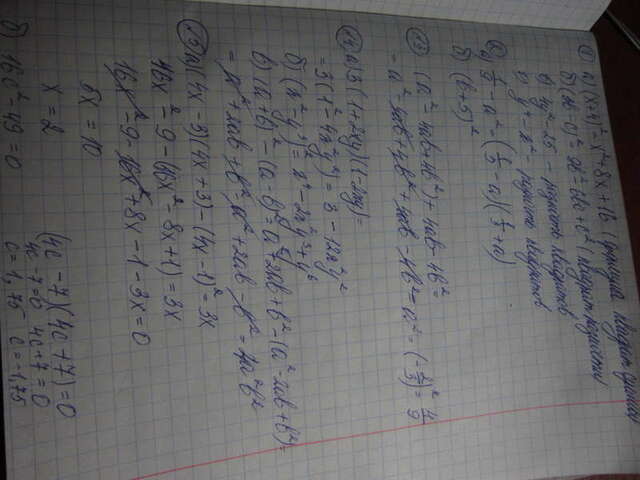 ① а) (x+4)² = x² + 8x + 16 (функция квадрат суммы)
в) 4y² - 25 - разность квадратов
г) y⁴ - x² - разность квадратов
② а) 1/9 - a² = (1/3 - a)(1/3 + a)
б) (b+5)²
③ (a² - 4ab + 4b²) + 4ab - 4b² =
= a² - 4ab + 4b² + 4ab - 4b² = a² = (-2/3)² = 4/9
④ а) 3(1+2xy)(1-2xy) =
= 3(1² - 4x²y²) = 3 - 12x²y²
б) (x² - y³)² = x⁴ - 2x²y³ + y⁶
в) (a+b)² - (a-b)² = a² + 2ab + b² - (a² - 2ab + b²) =
⑤ а) (4x-3)(4x+3) - (4x-1)² = 3x
16x² - 9 - (16x² - 8x + 1) = 3x
16x² - 9 - 16x² + 8x - 1 - 3x = 0
5x = 10
x = 2
б) 16c² - 49 = 0
(4c-7)(4c+7) = 0
4c - 7 = 0 4c + 7 = 0
c = 1,75 c = -1,75